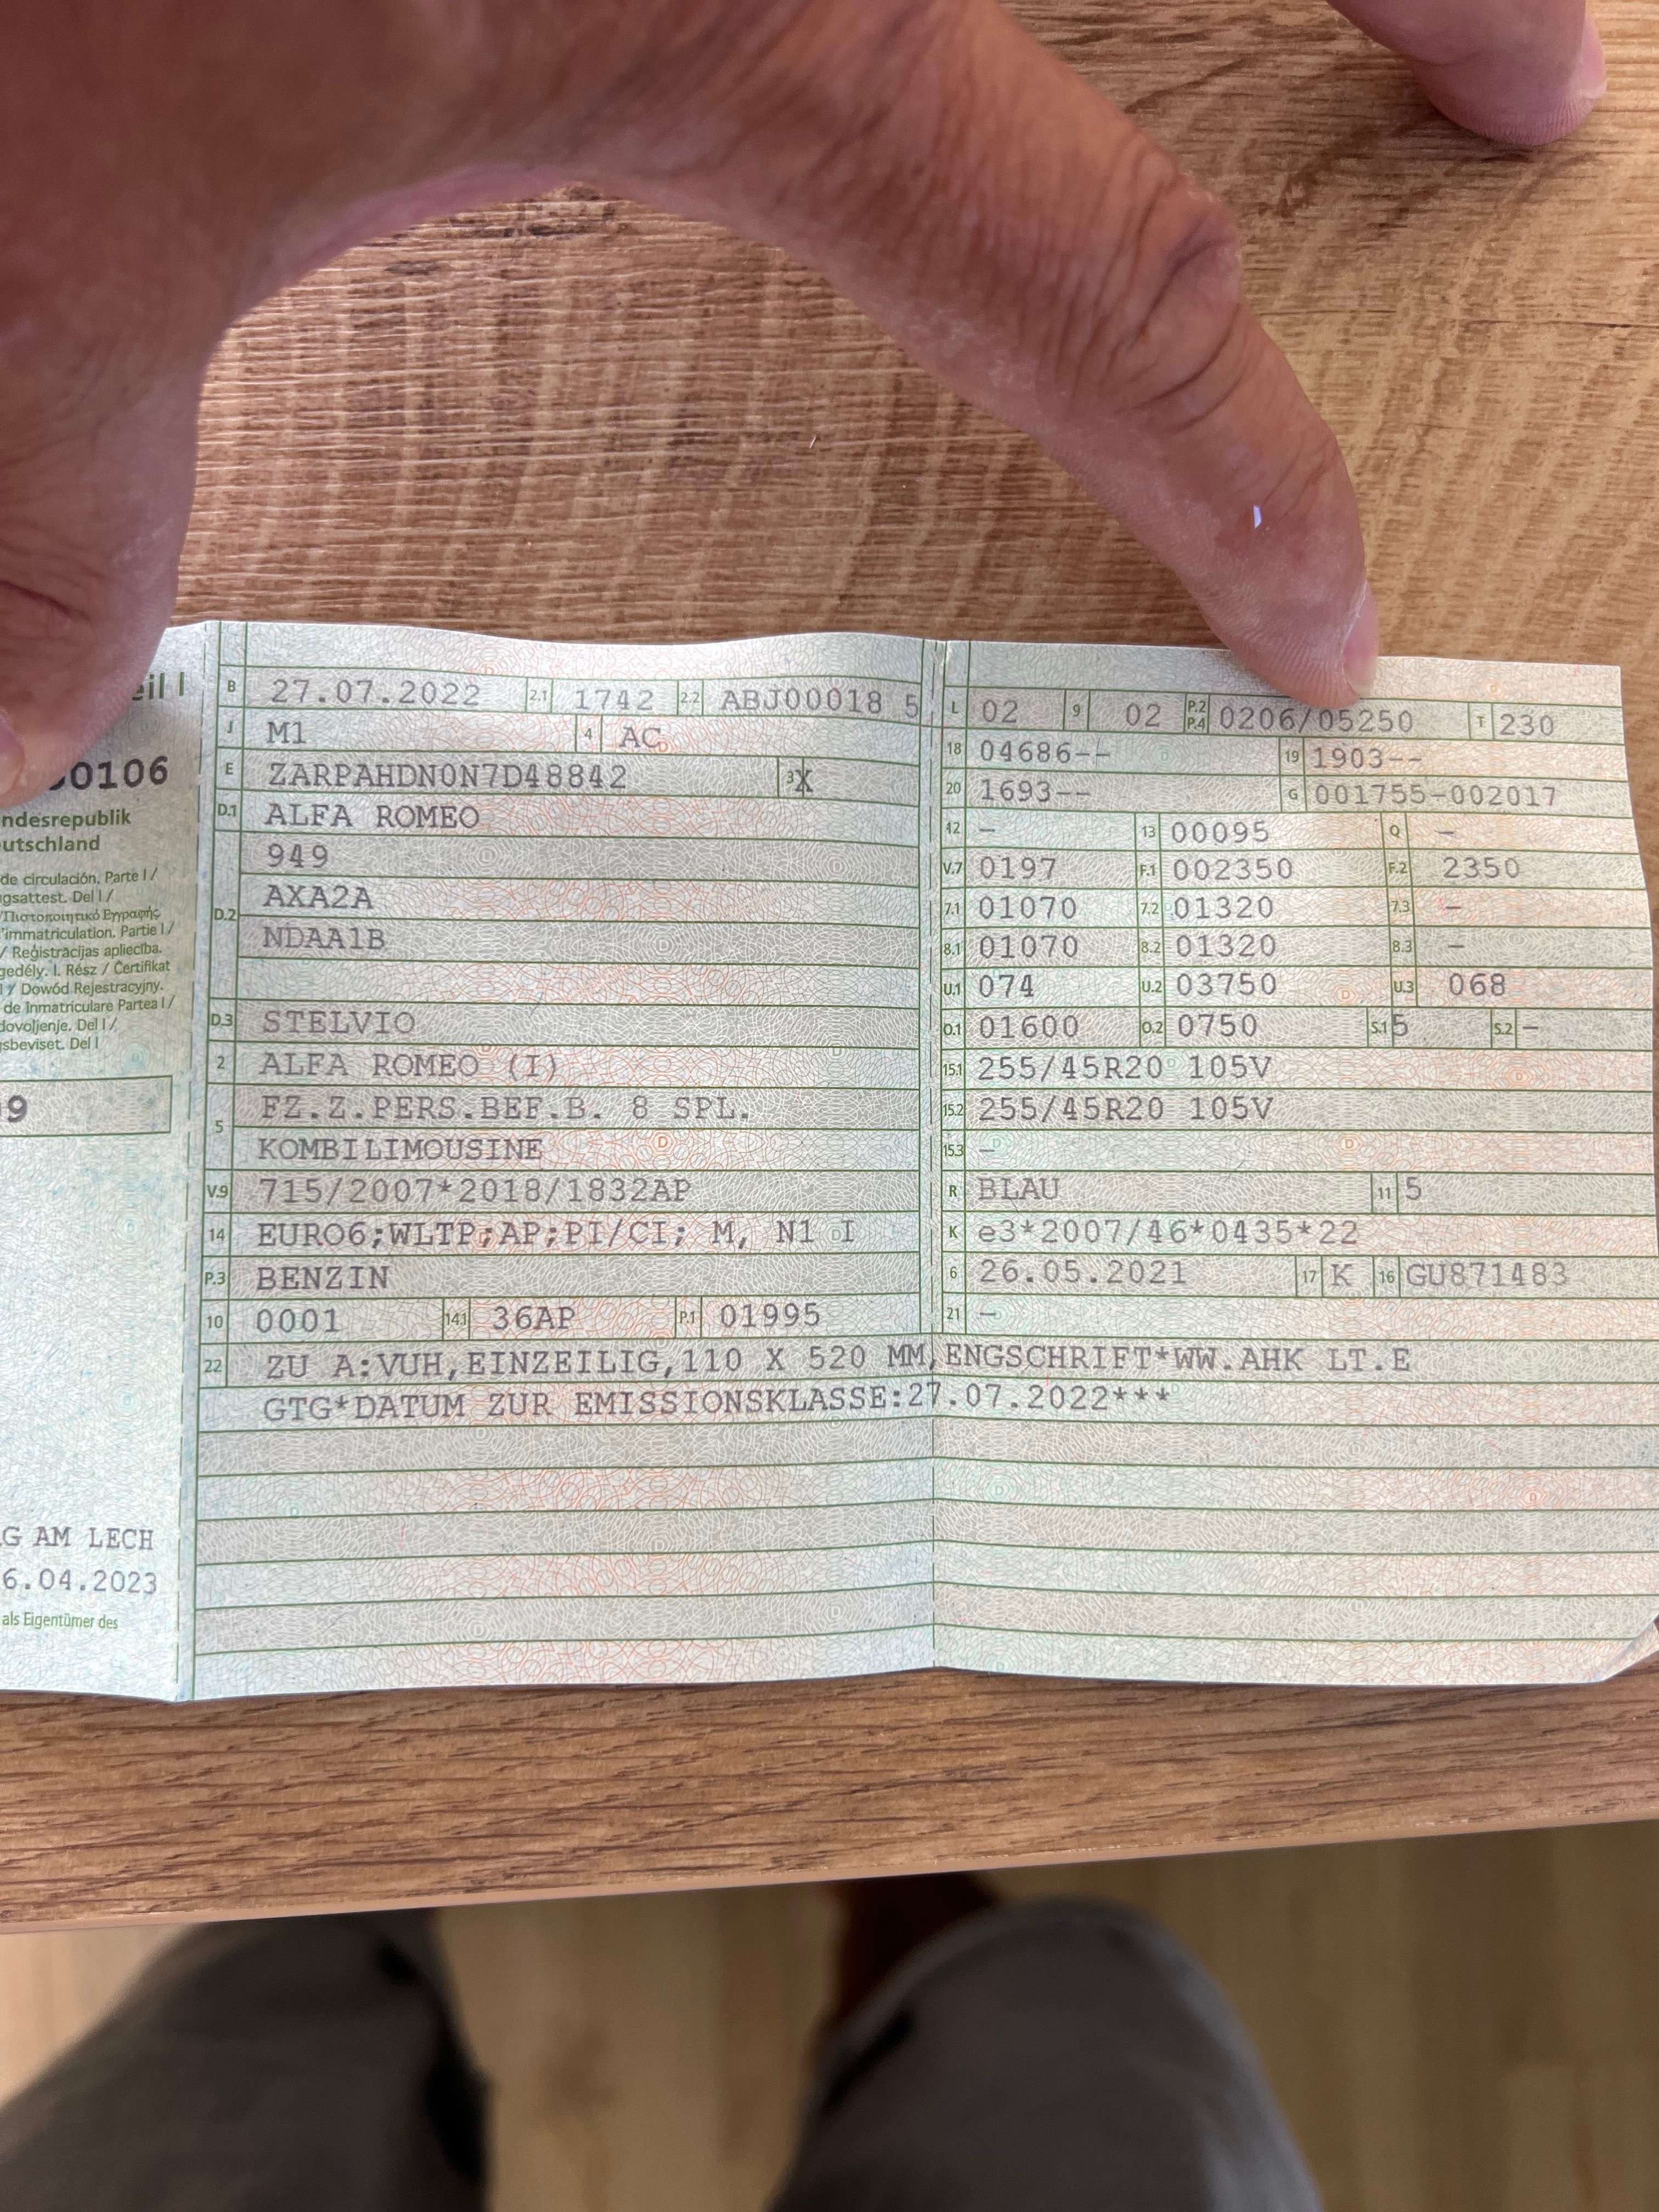 eil I
0106
ndesrepublik
utschland
de circulación. Parte I /
gsattest. Del I /
/Πιστοποιητικό Εγγραφής
'immatriculation. Partie I /
/ Reģistrācijas apliecība.
gedély. I. Rész / Čertifikat
I / Dowód Rejestracyjny.
de Inmatriculare Partea I /
dovoljenje. Del I /
gsbeviset. Del I
9
G AM LECH
6.04.2023
als Eigentümer des
B 27.07.2022 2.1 1742 2.2 ABJ00018 5
J M1 4 AC
E ZARPAHDN0N7D48842 3 X
D.1 ALFA ROMEO
949
D.2 AXA2A
NDAA1B
D.3 STELVIO
2 ALFA ROMEO (I)
5 FZ.Z.PERS.BEF.B. 8 SPL.
KOMBILIMOUSINE
V.9 715/2007*2018/1832AP
14 EURO6;WLTP;AP;PI/CI; M, N1 I
P.3 BENZIN
10 0001 14.1 36AP P.1 01995
L 02 9 02 P.2 P.4 0206/05250 T 230
18 04686-- 19 1903--
20 1693-- G 001755-002017
12 – 13 00095 Q –
V.7 0197 F.1 002350 F.2 2350
7.1 01070 7.2 01320 7.3 –
8.1 01070 8.2 01320 8.3 –
U.1 074 U.2 03750 U.3 068
O.1 01600 O.2 0750 S.1 5 S.2 –
15.1 255/45R20 105V
15.2 255/45R20 105V
15.3 –
R BLAU 11 5
K e3*2007/46*0435*22
6 26.05.2021 17 K 16 GU871483
21 –
22 ZU A:VUH,EINZEILIG,110 X 520 MM,ENGSCHRIFT*WW.AHK LT.E
GTG*DATUM ZUR EMISSIONSKLASSE:27.07.2022***